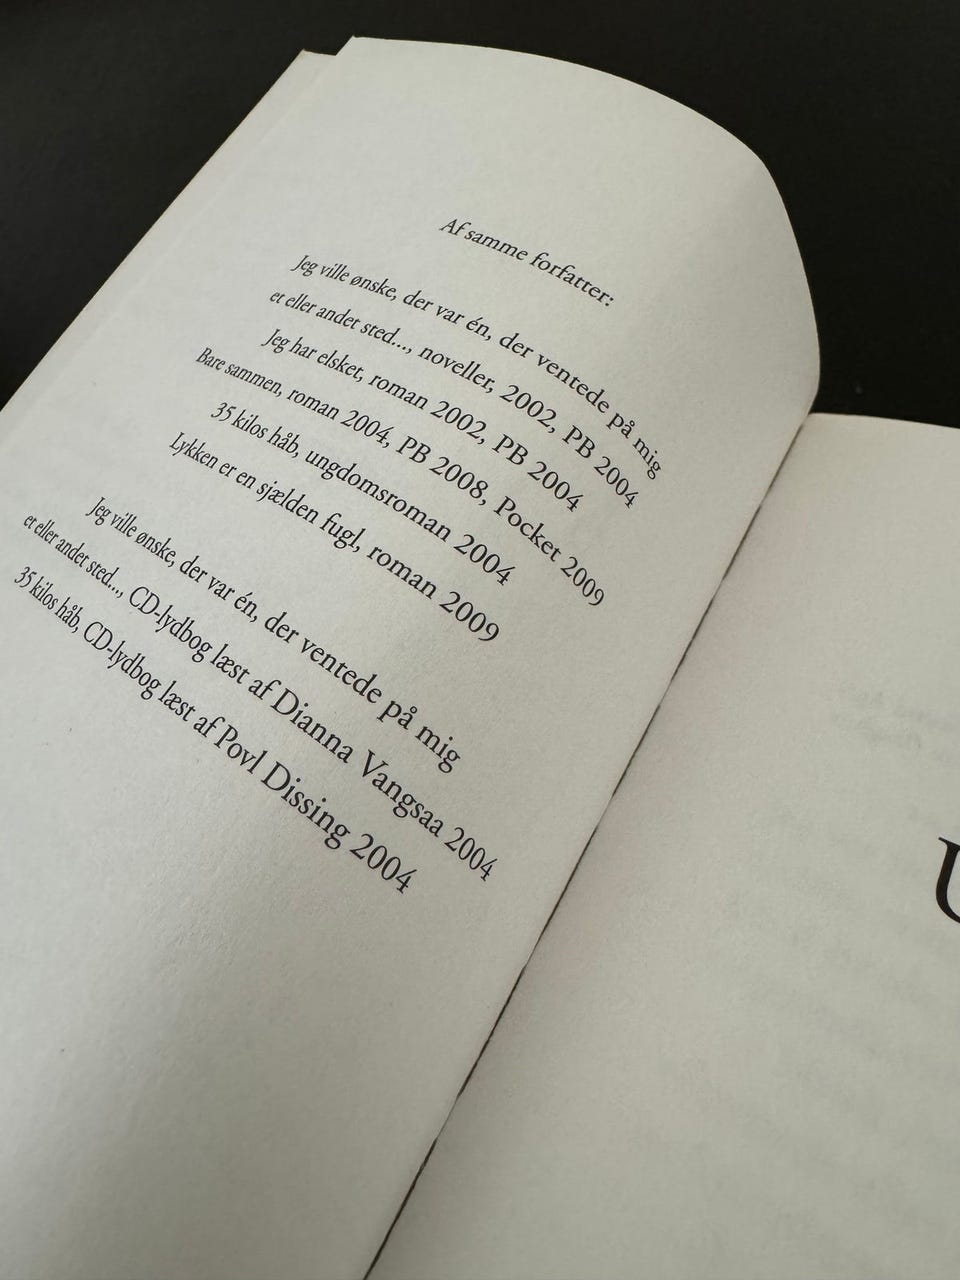 Af samme forfatter:
Jeg ville ønske, der var én, der ventede på mig
et eller andet sted..., noveller, 2002, PB 2004
Jeg har elsket, roman 2002, PB 2004
Bare sammen, roman 2004, PB 2008, Pocket 2009
35 kilos håb, ungdomsroman 2004
Lykken er en sjælden fugl, roman 2009
Jeg ville ønske, der var én, der ventede på mig
et eller andet sted..., CD-lydbog læst af Dianna Vangsaa 2004
35 kilos håb, CD-lydbog læst af Povl Dissing 2004